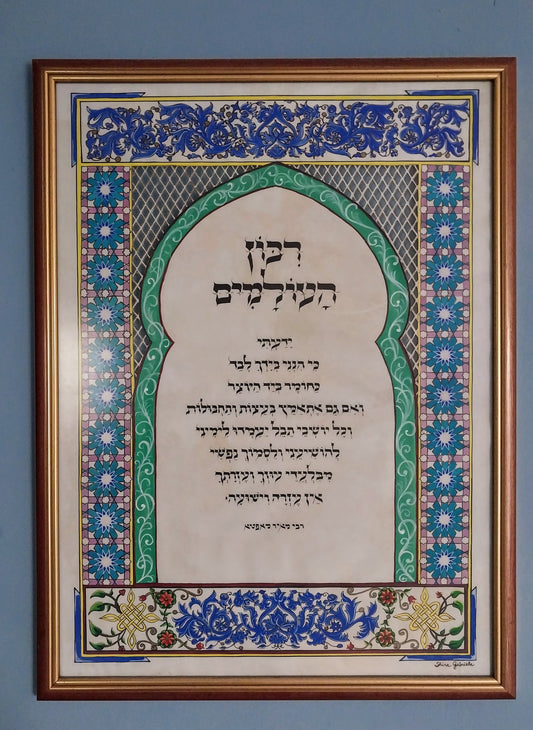 רִבּוֹן
הָעוֹלָמִים
יָדַעְתִּי
כִּי הִנְנִי בְּיָדְךָ לְבַד
כַּחוֹמֶר בְּיַד הַיּוֹצֵר
וְאִם גַּם אֶתְאַמֵּץ בְּעֵצוֹת וְתַחְבּוּלוֹת
וְכָל יוֹשְׁבֵי תֵבֵל יַעַמְדוּ לִימִינִי
לְהוֹשִׁיעֵנִי וְלִסְמוֹךְ נַפְשִׁי
מִבַּלְעֲדֵי עוּזְּךָ וְעֶזְרָתְךָ
אֵין עֶזְרָה וִישׁוּעָה.
רבי מאיר מאפטא